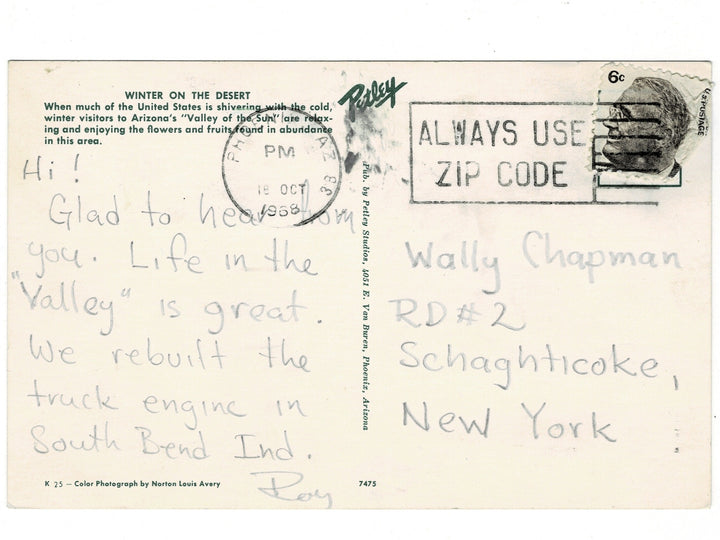 WINTER ON THE DESERT
When much of the United States is shivering with the cold,
winter visitors to Arizona's "Valley of the Sun" are relax-
ing and enjoying the flowers and fruits found in abundance
in this area.
Hi!
Glad to hear from
you. Life in the
"Valley" is great.
We rebuilt the
truck engine in
South Bend Ind.
Roy
K 25 — Color Photograph by Norton Louis Avery
7475
Petley
Pub. by Petley Studios, 4051 E. Van Buren, Phoenix, Arizona
PM
18 OCT
1968
ALWAYS USE
ZIP CODE
6c
U.S. POSTAGE
Wally Chapman
RD #2
Schaghticoke,
New York